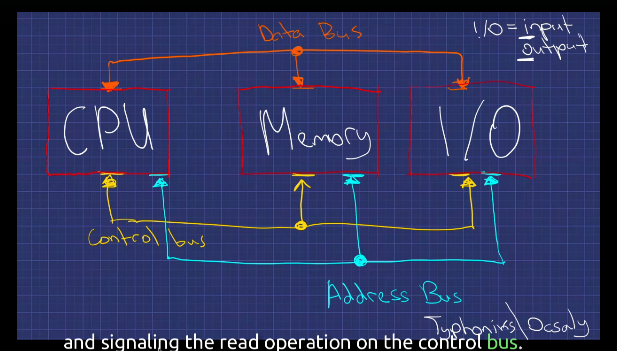 Data Bus
I/O = input
output
CPU
Memory
I/O
Control bus
Address Bus
Typhoniks\Ocsaly
and signaling the read operation on the control bus.